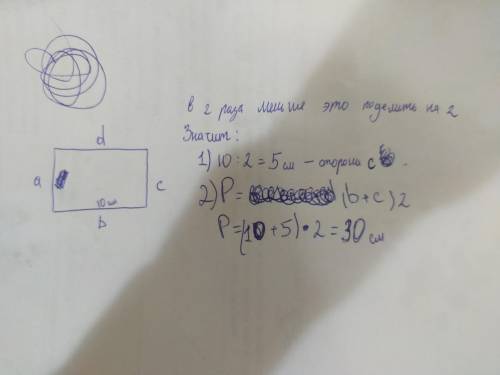 в 2 раза меньше это поделить на 2
Значит:
d
a
c
10 см
b
1) 10 : 2 = 5 см – сторона c .
2) P = (b + c) 2
P = (10 + 5) • 2 = 30 см